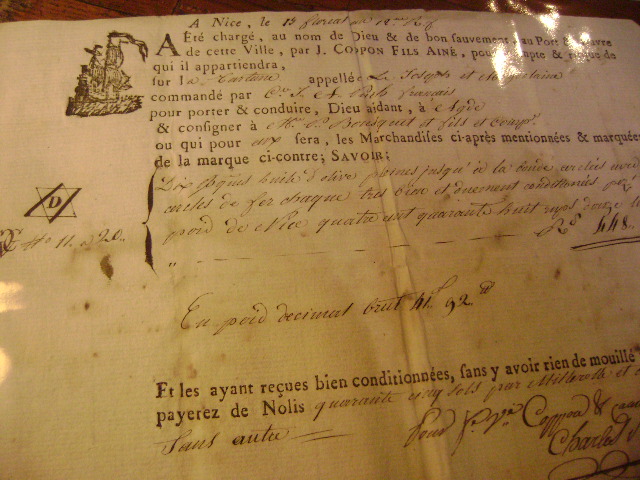 A Nice, le 15 floréal an 12
Été chargé, au nom de Dieu & de bon sauvement, au Port &
de cette Ville, par J. COPPON FILS AINÉ, pour & de
qui il appartiendra,
sur La Tartane appellée Le Joseph et
commandé par français
pour porter & conduire, Dieu aidant, à Agde
& consigner à Bousquet et fils et comp.
ou qui pour eux sera, les Marchandises ci-après mentionnées & marquées
de la marque ci-contre; SAVOIR;
Dix huile d'olive pleines jusqu'à la bonde cerclés
cercles de fer chaque tres bien et duement conditionnés
D
poid de Nice quatre cent quarante huit
No 11 a 20
448
En poid decimal brut 41 92
Et les ayant reçues bien conditionnées, sans y avoir rien de mouillé
payerez de Nolis quarante cinq sols par Millerolle et
sans autre
Pour Coppon &
Charles